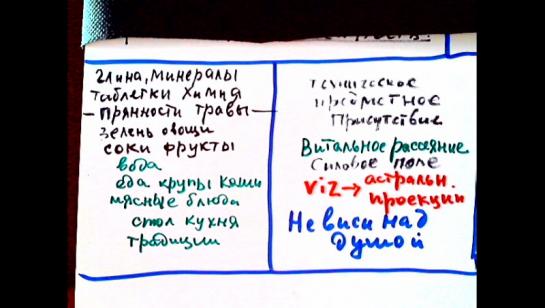 глина, минералы
таблетки химия
— прянности травы —
зелень овощи
соки фрукты
вода
еда крупы каши
мясные блюда
стол кухня
традиции
предметное
Присутствие
Витальное рассеяние
Силовое поле
Viz → астральн.
проекции
Не виси над
душой